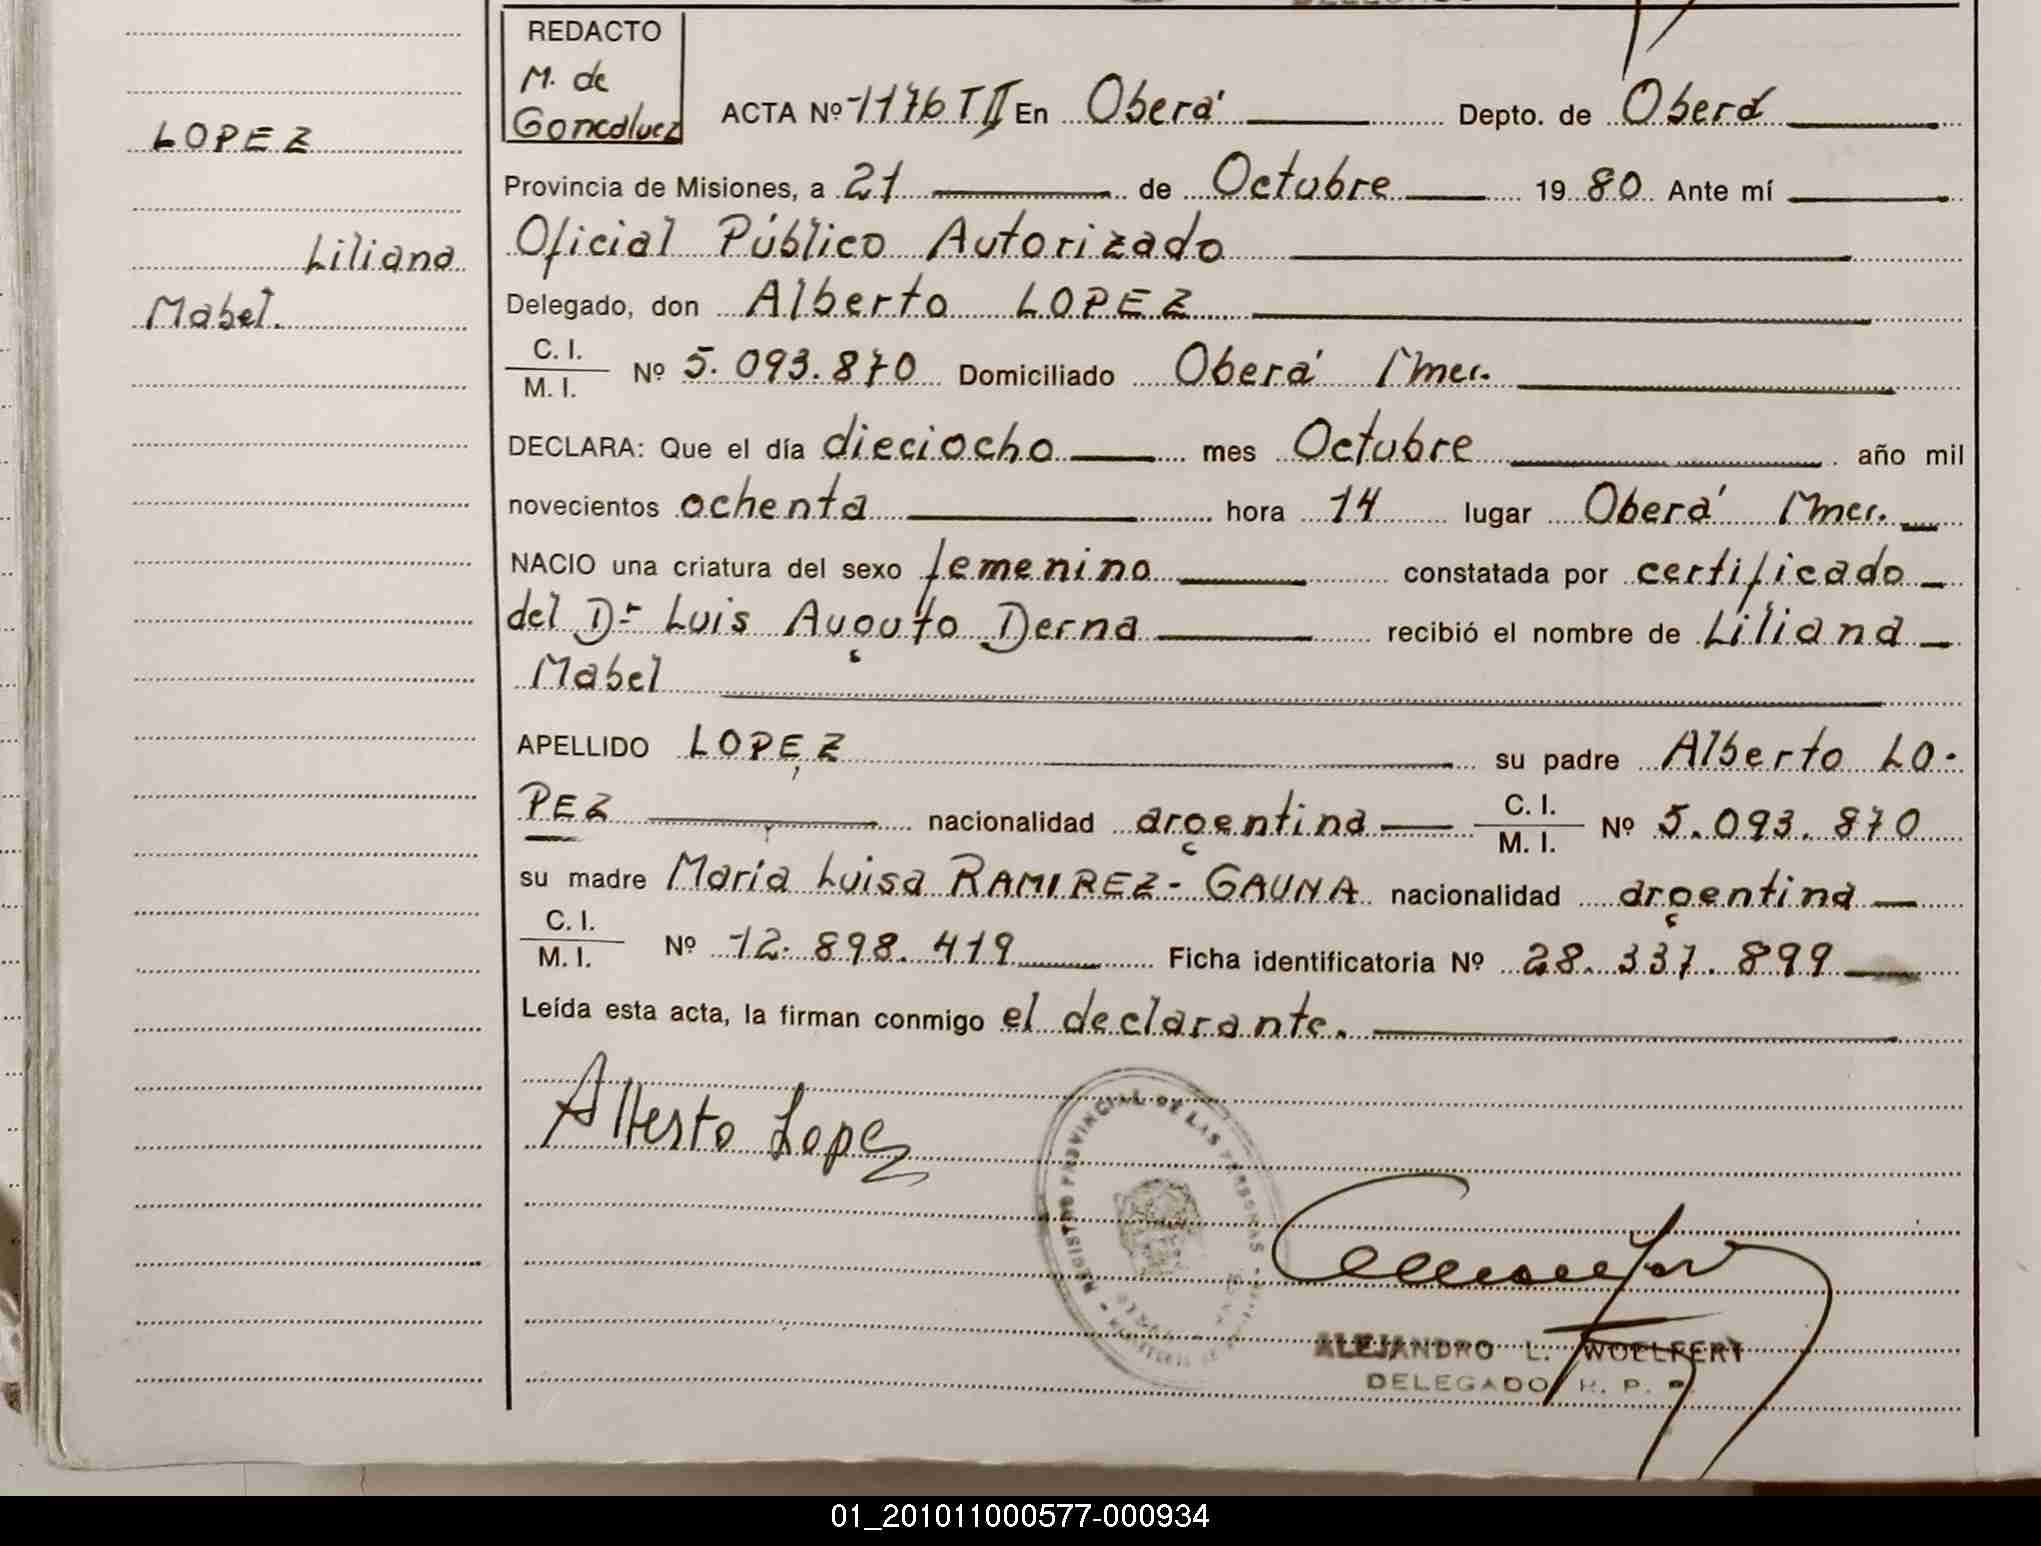 REDACTO
M. de
Goncalvez
LOPEZ
Liliana
Mabel.
ACTA Nº 1176 T II En Oberá Depto. de Oberá
Provincia de Misiones, a 21 de Octubre 1980 Ante mí
Oficial Público Autorizado
Delegado, don Alberto LOPEZ
C. I.
M. I. Nº 5.093.870 Domiciliado Oberá Mnes.
DECLARA: Que el día dieciocho mes Octubre año mil
novecientos ochenta hora 14 lugar Oberá Mnes.
NACIO una criatura del sexo femenino constatada por certificado
del Dr Luis Auguto Derna recibió el nombre de Liliana
Mabel
APELLIDO LOPEZ su padre Alberto LO-
PEZ nacionalidad argentina C. I.
M. I. Nº 5.093.870
su madre María Luisa RAMIREZ-GAUNA nacionalidad argentina
C. I.
M. I. Nº 12.898.419 Ficha identificatoria Nº 28.337.899
Leída esta acta, la firman conmigo el declarante.
Alberto Lopez
REGISTRO PROVINCIAL DE LAS PERSONAS
ALEJANDRO L. WOELFERT
DELEGADO R. P. P.
01_201011000577-000934